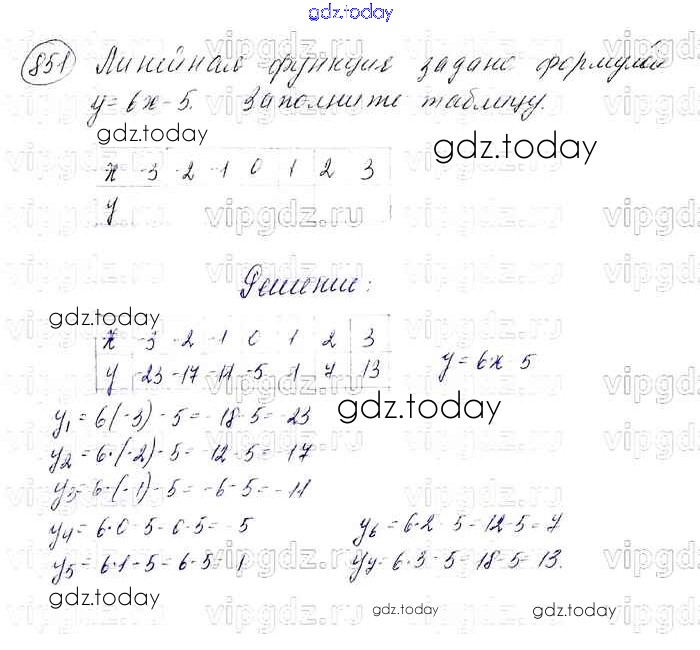 gdz.today
851 Линейная функция задано формулой
y = 6x - 5. Заполните таблицу.
gdz.today
gdz.today
x -3 -2 -1 0 1 2 3
y
vipgdz.ru vipgdz.ru vipgdz.ru
Решение:
gdz.today
x -3 -2 -1 0 1 2 3
y -23 -17 -11 -5 1 7 13
y = 6x - 5
y₁ = 6·(-3) - 5 = -18 - 5 = -23
gdz.today
y₂ = 6·(-2) - 5 = -12 - 5 = -17
y₃ = 6·(-1) - 5 = -6 - 5 = -11
y₄ = 6·0 - 5 = 0 - 5 = -5
y₆ = 6·2 - 5 = 12 - 5 = 7
y₅ = 6·1 - 5 = 6 - 5 = 1
y₇ = 6·3 - 5 = 18 - 5 = 13.
gdz.today
gdz.today
gdz.today